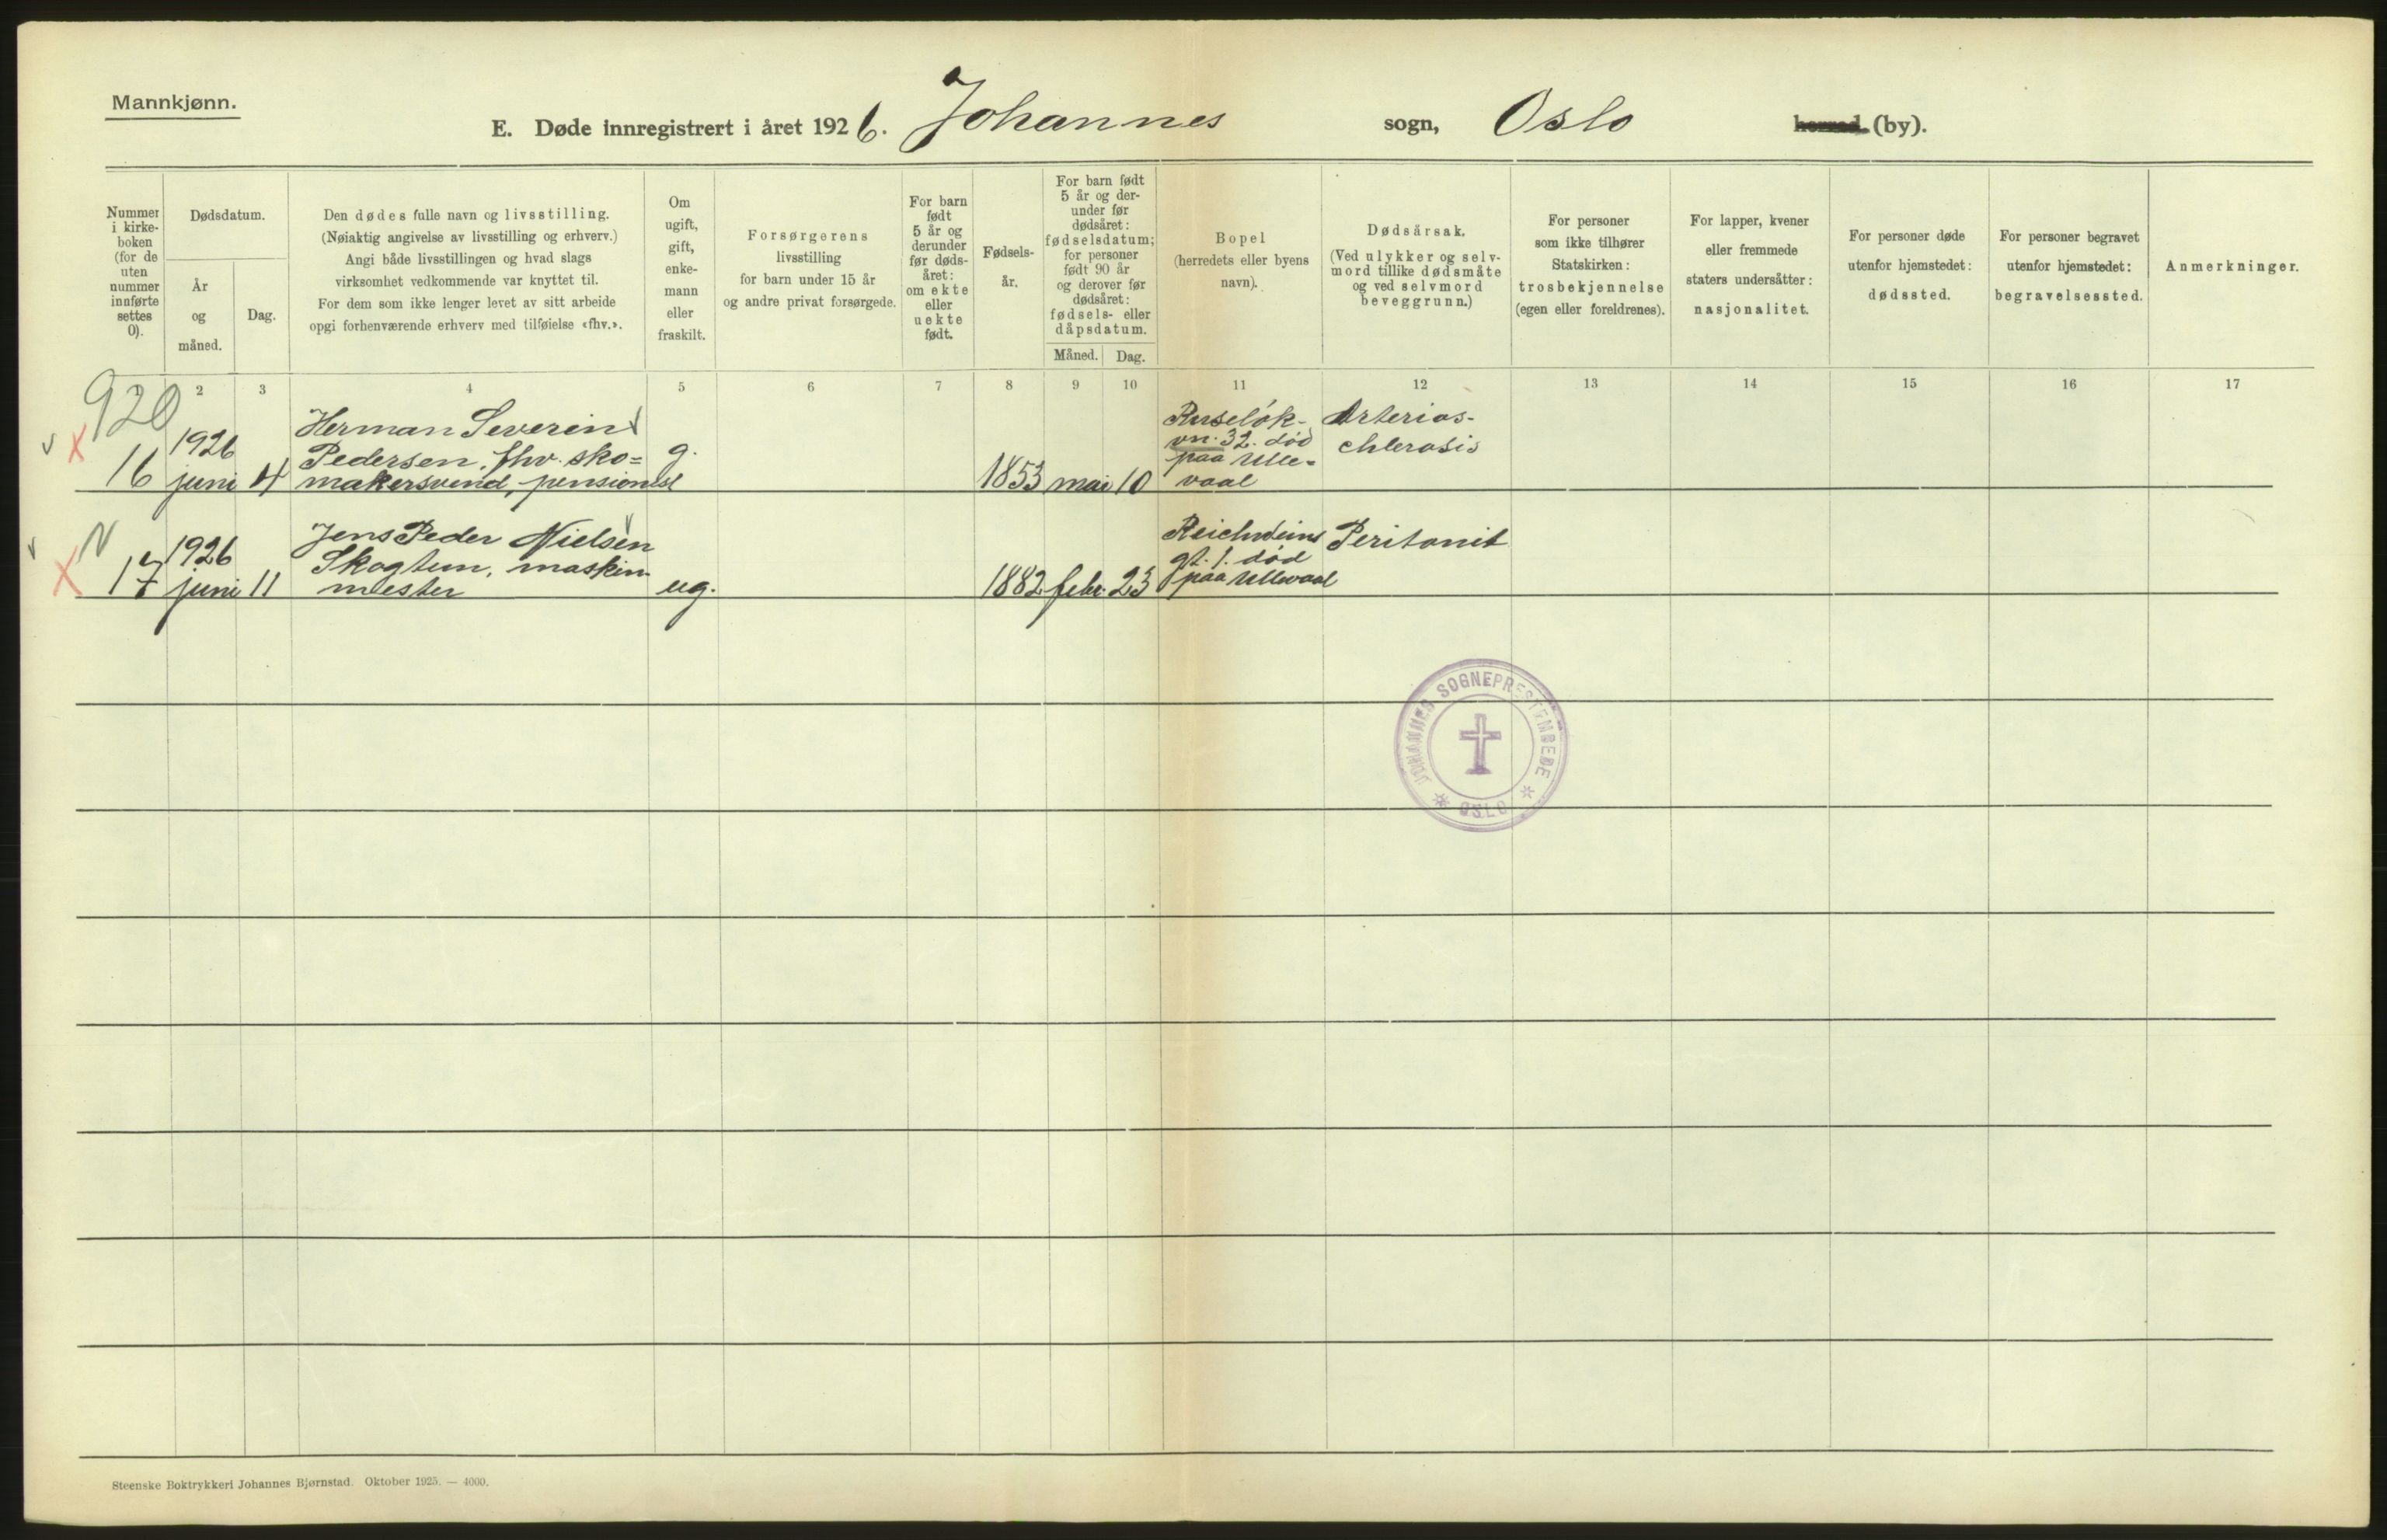 Mannkjønn.
E. Døde innregistrert i året 1926. Johannes sogn, Oslo herred (by).
Nummer
i kirke-
boken
(for de
uten
nummer
innførte
settes
0).
Dødsdatum.
År
og
måned.
Dag.
Den dødes fulle navn og livsstilling.
(Nøiaktig angivelse av livsstilling og erhverv.)
Angi både livsstillingen og hvad slags
virksomhet vedkommende var knyttet til.
For dem som ikke lenger levet av sitt arbeide
opgi forhenværende erhverv med tilføielse «fhv.».
Om
ugift,
gift,
enke-
mann
eller
fraskilt.
Forsørgerens
livsstilling
for barn under 15 år
og andre privat forsørgede.
For barn
født
5 år og
derunder
før døds-
året:
om ekte
eller
uekte
født.
Fødsels-
år.
For barn født
5 år og der-
under før
dødsåret:
fødselsdatum;
for personer
født 90 år
og derover før
dødsåret:
fødsels- eller
dåpsdatum.
Måned.
Dag.
Bopel
(herredets eller byens
navn).
Dødsårsak.
(Ved ulykker og selv-
mord tillike dødsmåte
og ved selvmord
beveggrunn.)
For personer
som ikke tilhører
Statskirken:
trosbekjennelse
(egen eller foreldrenes).
For lapper, kvener
eller fremmede
staters undersåtter:
nasjonalitet.
For personer døde
utenfor hjemstedet:
dødssted.
For personer begravet
utenfor hjemstedet:
begravelsessted.
Anmerkninger.
2 3 4 5 6 7 8 9 10 11 12 13 14 15 16 17
920
16
1926
juni
4
Herman Severin
Pedersen, fhv. sko=
makersvend, pensionist
g.
1853 mai 10
Ruseløk-
vn. 32. død
paa Ulle=
vaal
Arterios-
chlerosis
N
17
1926
juni
11
Jens Peder Nielsen
Skogtun, maskin-
mester
ug.
1882 febr. 23
Reichweins
gt. 1. død
paa Ullevaal
Peritonit
JOHANNES SOGNEPRESTEMBEDE
* OSLO *
Steenske Boktrykkeri Johannes Bjørnstad. Oktober 1925. — 4000.